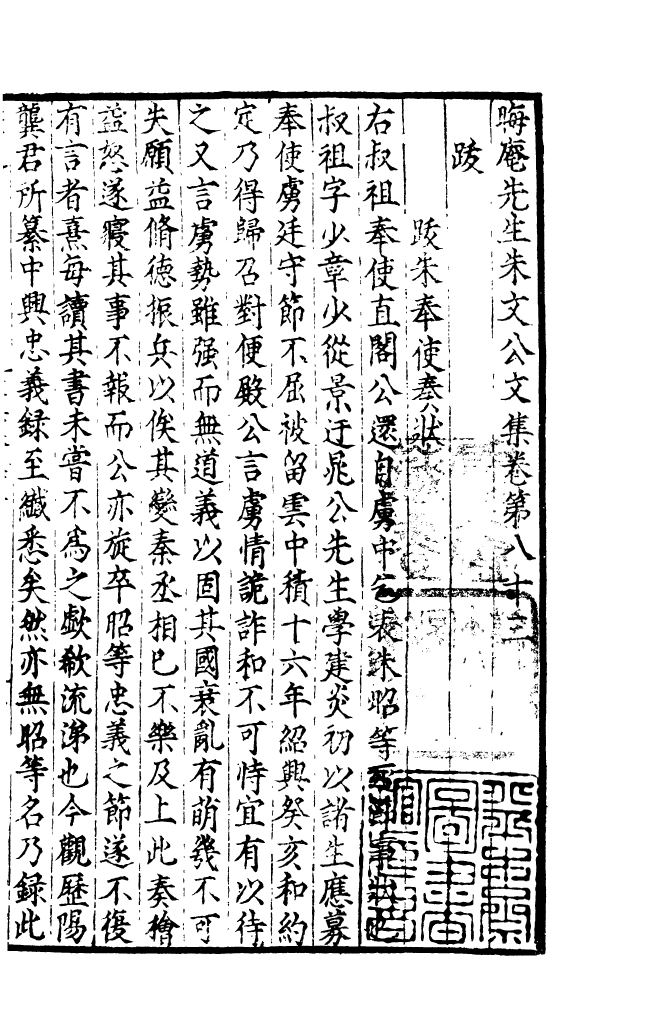 晦庵先生朱文公文集卷第八十三
跋
跋朱奉使奏狀
右叔祖奉使直閣公還自虜中乞表朱昭等死節事狀
叔祖字少章少從景迂晁公先生學建炎初以諸生應募
奉使虜廷守節不屈被留雲中積十六年紹興癸亥和約
定乃得歸召對便殿公言虜情詭詐和不可恃宜有以待
之又言虜勢雖强而無道義以固其國衰亂有萌幾不可
失願益脩德振兵以俟其變秦丞相已不樂及上此奏檜
益怒遂寢其事不報而公亦旋卒昭等忠義之節遂不復
有言者熹每讀其書未嘗不為之歔欷流涕也今觀歷陽
龔君所纂中興忠義録至纖悉矣然亦無昭等名乃録此